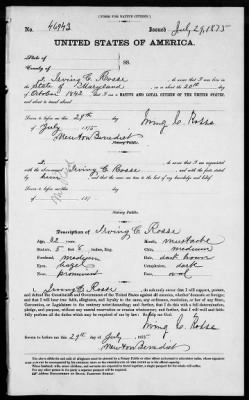 [FORM FOR NATIVE CITIZEN.]
No. 46943 Issued July 29, 1875
UNITED STATES OF AMERICA.
State of
County of
ss.
I, Irving C. Rosse, do swear that I was born in the
State of Maryland on or about the 20th day
of October 1842, that I am a NATIVE AND LOYAL CITIZEN OF THE UNITED STATES,
and about to travel
Sworn to before me this 29th day
of July 1875
Irving C. Rosse
Newton Benedict
Notary Public.
I,
Irving C. Rosse
Sworn to before me this
day of 187
Notary Public.
Description of Irving C. Rosse
Age, 32
Mouth, mustache
Stature, 5 ft 8 inches, Eng.
Chin, medium
Forehead, medium
Hair, dark brown
Eyes, hazel
Complexion, dark
Nose, prominent
Face, oval
I, Irving C. Rosse, do solemnly swear that I will support, protect,
and defend the Constitution and Government of the United States against all enemies, whether domestic or foreign;
and that I will bear true faith, allegiance, and loyalty to the same, any ordinance, resolution, or law of any State,
Convention, or Legislature to the contrary notwithstanding; and further, that I do this with a full determination,
pledge, and purpose, without any mental reservation or evasion whatsoever; and further, that I will well and faith-
fully perform all the duties which may be required of me by law: So help me God.
Irving C. Rosse
Sworn to before me this 29th day of July, 1875
Newton Benedict
Notary Public.